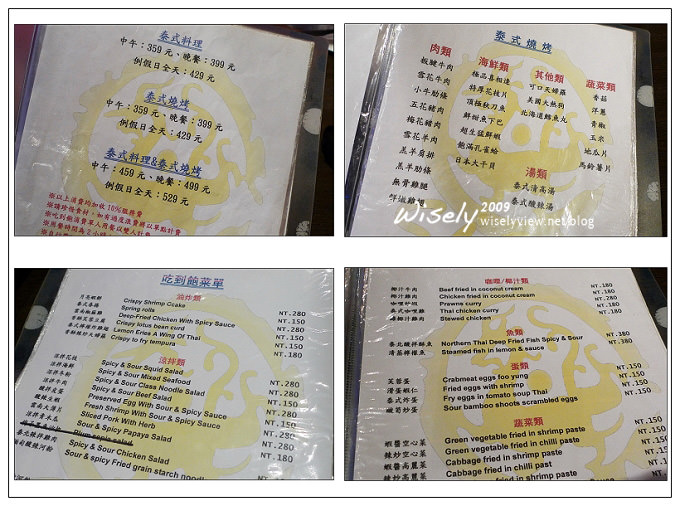 泰式料理
中午：359 元、晚餐：399 元
例假日全天：429 元
泰式燒烤
中午：359 元、晚餐：399 元
例假日全天：429 元
泰式料理&泰式燒烤
中午：459 元、晚餐：499 元
例假日全天：529 元
※以上消費均加收 10%服務費
泰式燒烤
肉類
板腱牛肉
雪花牛肉
小牛肋條
五花豬肉
梅花豬肉
雪花羊肉
羔羊肩排
羔羊肋條
無骨雞腿
鮮嫩雞翅
海鮮類
極品喜相逢
特厚花枝片
頂極秋刀魚
鮮甜魚下巴
超生猛鮮蝦
飽滿孔雀蛤
日本大干貝
其他類
可口天婦羅
美國大熱狗
北海道鱈魚丸
湯類
泰式清高湯
泰式酸辣湯
蔬菜類
香菇
洋蔥
青椒
玉米
地瓜片
馬鈴薯片
Wisely 2009
wiselyview.net/blog
吃到飽菜單
油炸類
月亮蝦餅 Crispy Shrimp Ccake NT.280
泰式春捲 Spring rolls NT.150
Deep-Fried Chicken With Spicy Sauce NT.280
Crispy lotus bean curd NT.150
Lemon Eries A Wing Of Thai NT.150
Crispy to fry tempura NT.180
涼拌類
涼拌花枝 Spicy & Sour Squid Salad
涼拌海鮮 Spicy & Sour Mixed Seafood NT.280
涼拌冬粉 Spicy & Sour Class Noodle Salad
涼拌牛肉 Spicy & Sour Beef Salad
酸拌皮蛋 Preserved Egg With Sour & Spicy Sauce
酸辣生蝦 Fresh Shrimp With Sour & Spicy Sauce
雲南大薄片 Sliced Pork With Herb
涼拌青木瓜 Sour & Spicy Papaya Salad
Spicy & Sour Chicken Salad
Sour & spicy Fried grain starch noodle
咖哩/椰汁類
椰汁牛肉 Beef fried in coconut cream NT.180
椰汁雞肉 Chicken fried in coconut cream NT.180
咖哩炒蝦 Prawns curry NT.280
泰式咖哩雞 Thai chicken curry NT.180
Stewed chicken NT.180
魚類
泰北酸拌鮮魚 Northern Thai Deep Fried Fish Spicy & Sour NT.380
清蒸檸檬魚 Steamed fish in lemon & sauce NT.380
蛋類
芙蓉蛋 Crabmeat eggs foo yung NT.150
滑蛋蝦仁 Fried eggs with shrimp NT.150
泰式炸蛋 Fry eggs in tomato soup Thai NT.150
酸筍炒蛋 Sour bamboo shoots scrambled eggs NT.150
蔬菜類
蝦醬空心菜 Green vegetable fried in shrimp paste NT.150
辣炒空心菜 Green vegetable fried in chilli paste NT.150
蝦醬高麗菜 Cabbage fried in shrimp paste NT.150
辣炒高麗菜 Cabbage fried in chilli past NT.150
fried in shrimp paste